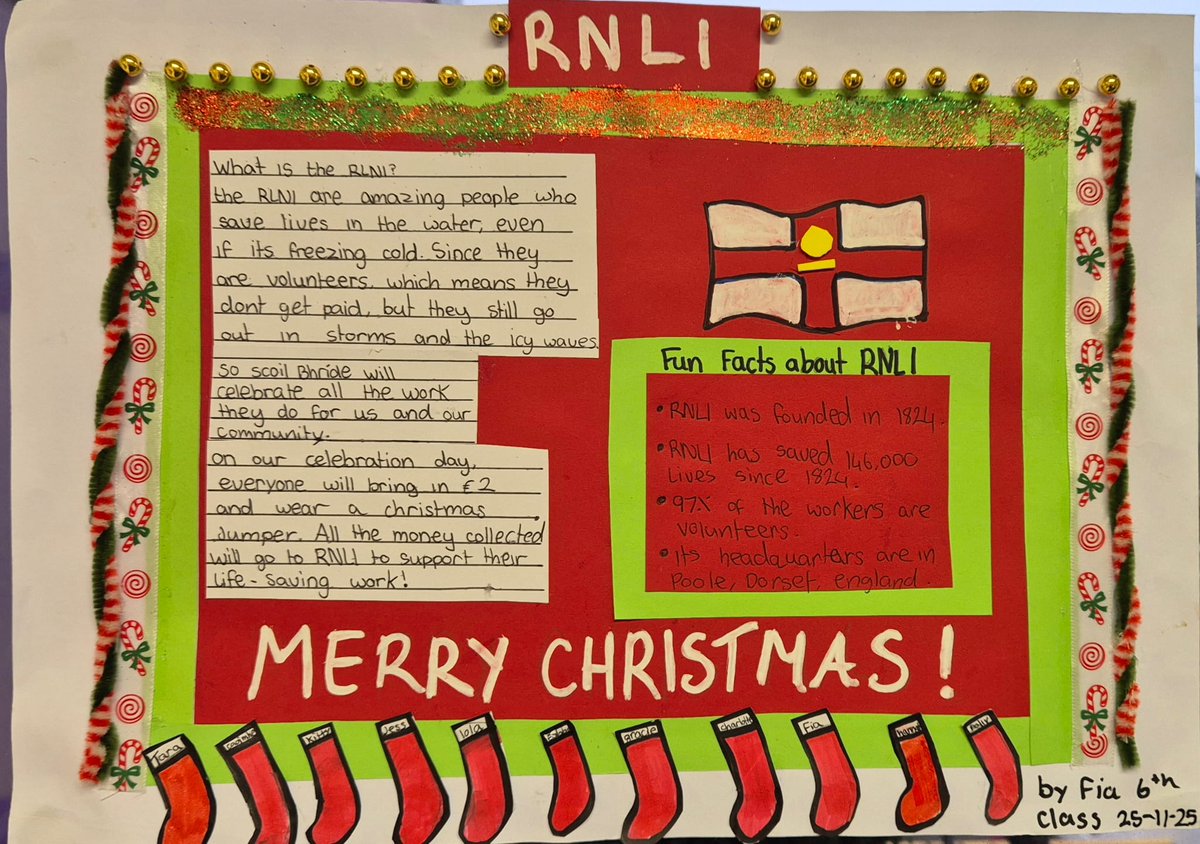 RNLI
What is the RLNI?
the RLNI are amazing people who
save lives in the water, even
if its freezing cold. Since they
are volunteers, which means they
dont get paid, but they still go
out in storms and the icy waves.
so scoil Bhríde will
celebrate all the work
they do for us and our
community.
on our celebration day,
everyone will bring in €2
and wear a christmas
Jumper. All the money collected
will go to RNLI to support their
life-saving work!
Fun Facts about RNLI
• RNLI was founded in 1824.
• RNLI has saved 146,000
lives since 1824.
• 97% of the workers are
volunteers.
• Its headquarters are in
Poole, Dorset, england.
MERRY CHRISTMAS!
Tara
Kitty
Jess
lola
gracie
Fia
by Fia 6th
class 25-11-25